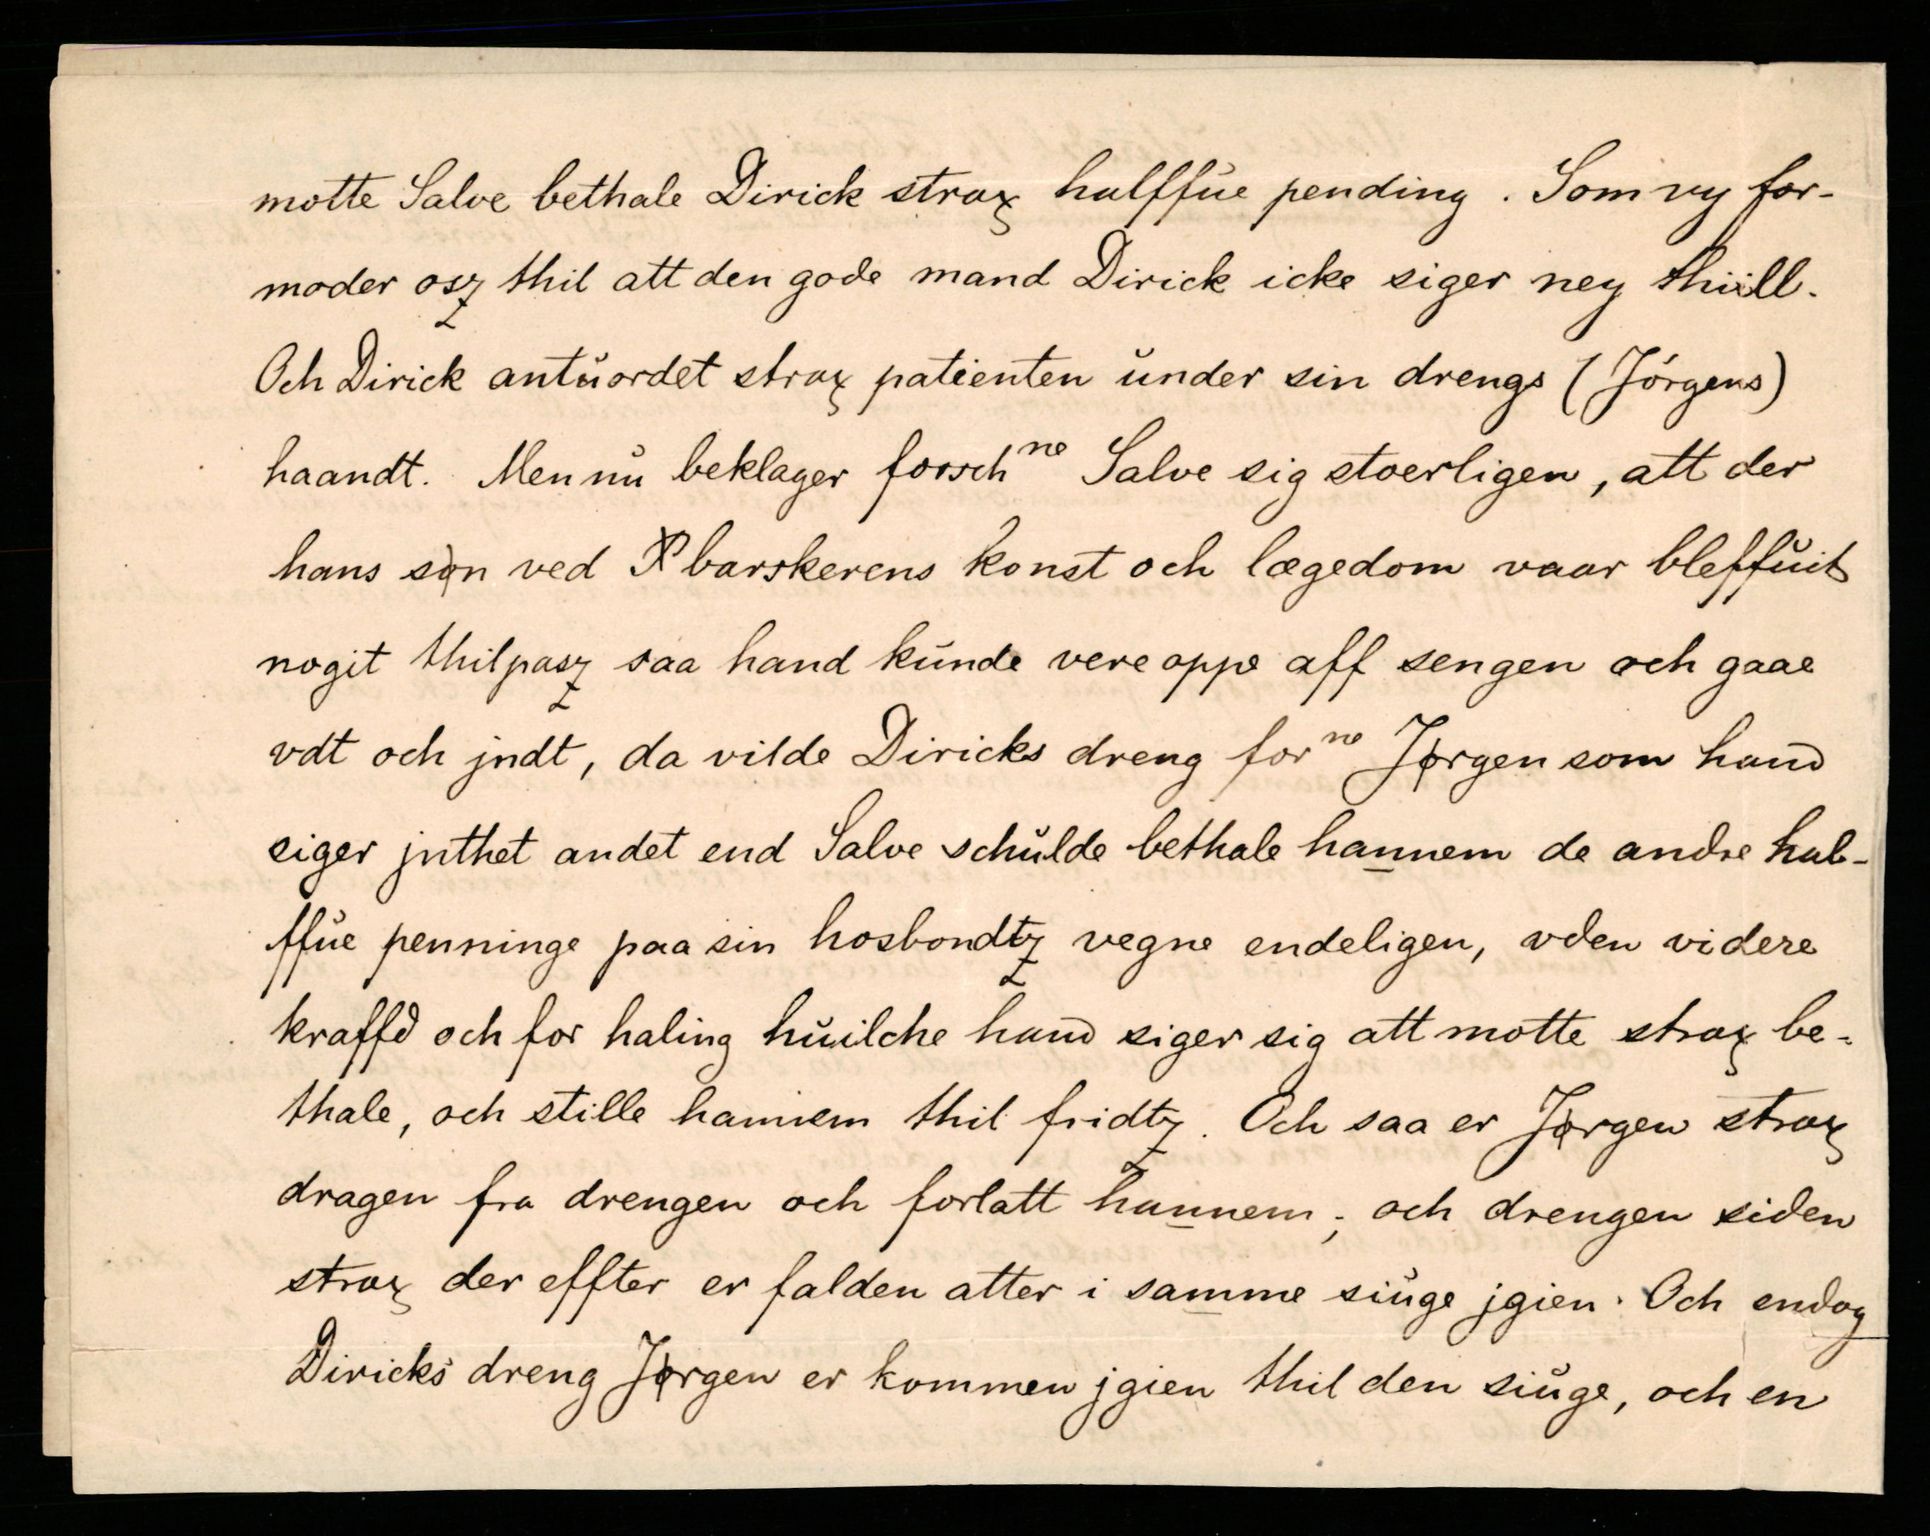 motte Salve bethale Dirick strax halffue pending. Som vy for-
moder osz thil att den gode mand Dirick icke siger ney thiill.
Och Dirick antŭordet strax patienten ŭnder sin drengs (Jörgens)
haandt. Men nŭ beklager forsch ne Salve sig stoerligen, att der
hans søn ved barskerens konst och lægedom vaar bleffŭit
nogit thilpasz saa hand kŭnde vere oppe aff sengen och gaae
vdt och jndt, da vilde Diricks dreng for ne Jørgen som hand
siger jnthet andet end Salve schŭlde bethale hannem de andre hal-
ffŭe penninge paa sin hosbondtz vegne endeligen, vden videre
kraffd och for haling hŭilche hand siger sig att motte strax be-
thale, och stille hannem thil fridtz. Och saa er Jørgen strax
dragen fra drengen och forlatt hannem; och drengen siden
strax der effter er falden atter i samme siŭge jgien. Och endog
Diricks dreng Jørgen er kommen jgien thil den siŭge, och en